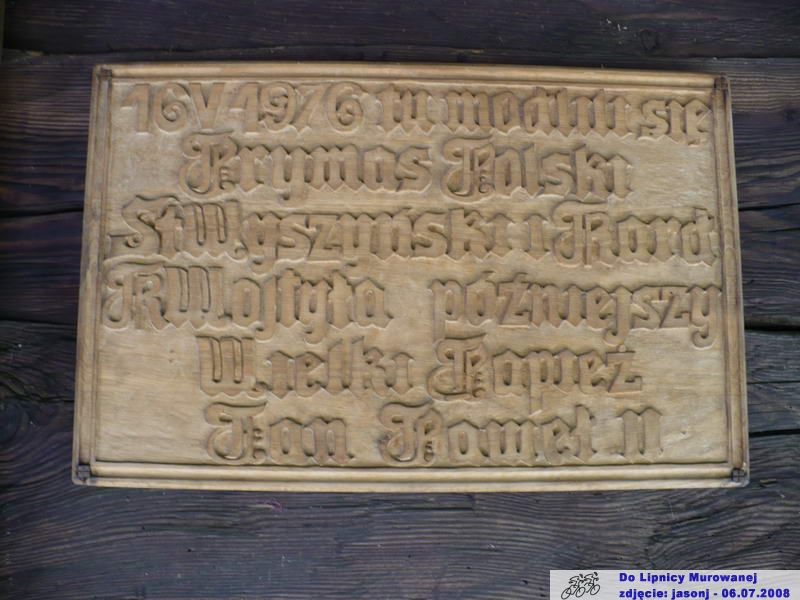 16 V 1976 tu modlili się
Prymas Polski
St Wyszyński i Kard
K Wojtyła późniejszy
Wielki Papież
Jan Paweł II
Do Lipnicy Murowanej
zdjęcie: jasonj - 06.07.2008